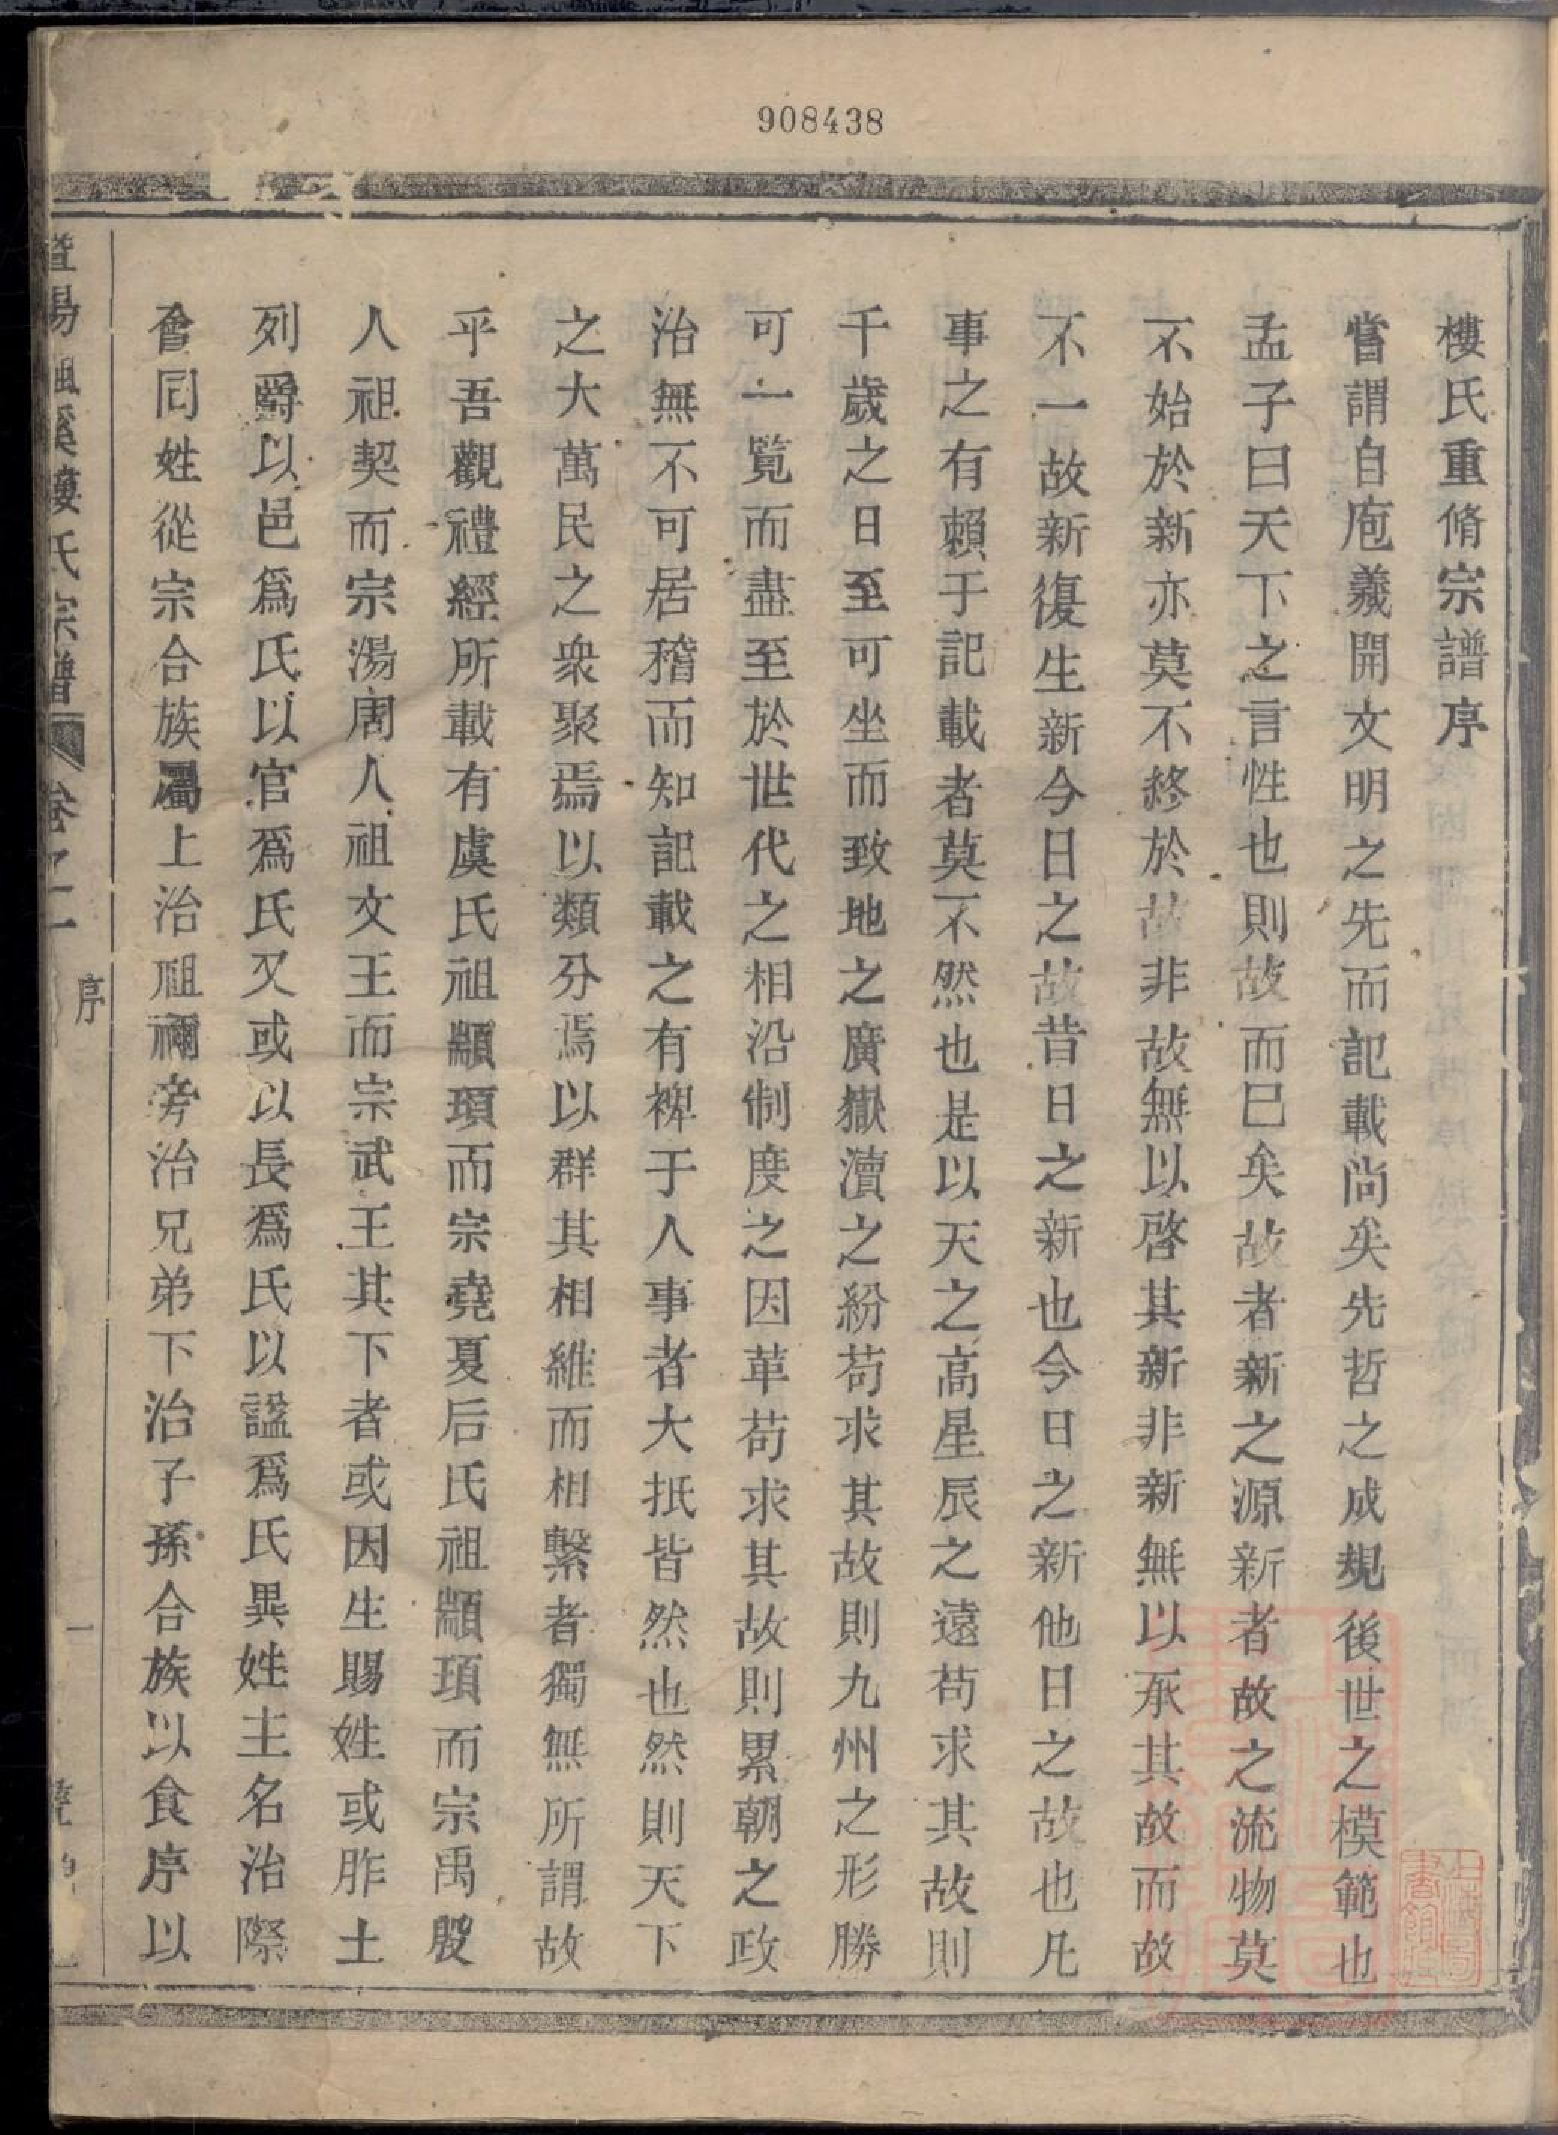 908438
樓氏重脩宗譜序
嘗謂自庖羲開文明之先而記載尚矣先哲之成規後世之模範也
孟子曰天下之言性也則故而已矣故者新之源新者故之流物莫
不始於新亦莫不終於故非故無以啓其新非新無以承其故而故
不一故新復生新今日之故昔日之新也今日之新他日之故也凡
事之有賴于記載者莫不然也是以天之高星辰之遠苟求其故則
千歲之日至可坐而致地之廣嶽瀆之紛苟求其故則九州之形勝
可一覧而盡至於世代之相沿制度之因革苟求其故則累朝之政
治無不可居稽而知記載之有裨于人事者大抵皆然也然則天下
之大萬民之衆聚焉以類分焉以群其相維而相繫者獨無所謂故
乎吾觀禮經所載有虞氏祖顓頊而宗堯夏后氏祖顓頊而宗禹殷
人祖契而宗湯周人祖文王而宗武王其下者或因生賜姓或胙土
列爵以邑爲氏以官爲氏又或以長爲氏以謚爲氏異姓主名治際
會同姓從宗合族屬上治祖禰旁治兄弟下治子孫合族以食序以
暨陽 溪樓氏宗譜 卷之一 序 一
上海圖書館藏